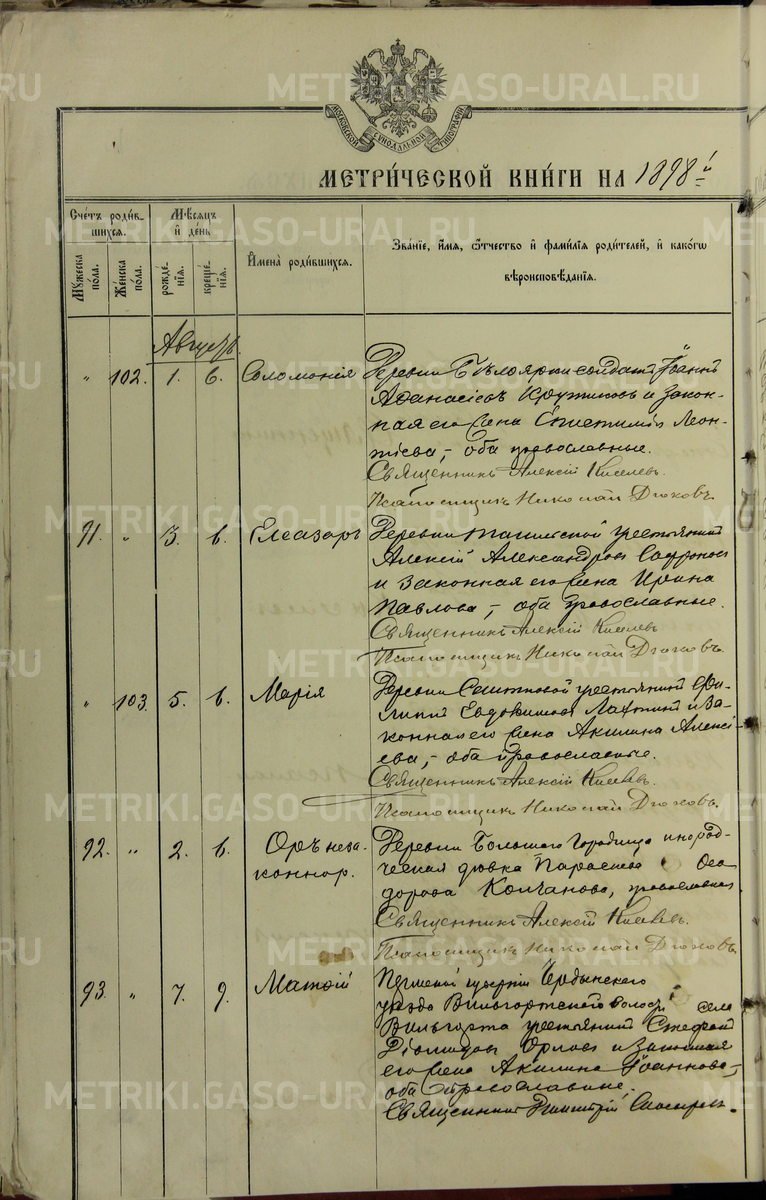 METRIKI.GASO-URAL.RU
МОСКОВСКОЙ СѴНОДАЛЬНОЙ ТИПОГРАФІИ
МЕТРИ́ЧЕСКОЙ КНИ́ГИ НА 1898й
Сче́тъ роди́вшихсѧ.
Мꙋ́жеска по́ла.
Же́нска по́ла.
Мѣ́сѧцъ и҆ де́нь
рожде́нїѧ.
креще́нїѧ.
И҆мена̀ роди́вшихсѧ.
Зва́нїе, и҆́мѧ, ѻ҆́тчество и҆ фами́лїѧ роди́телей, и҆ како́гѡ
вѣроисповѣ́данїѧ.
Августъ
" 102. 1. 6. Соломонія
Деревни Бѣлоярки солдатъ Іоаннъ
Аѳанасіевъ Крутиковъ и закон-
ная его жена Епистимія Леон-
тіева, – оба православные.
Священникъ Алексій Киселевъ.
Псаломщикъ Николай Дьяковъ.
91. " 3. 6. Елеазаръ
Деревни крестьянинъ
Алексій Александровъ Сафроновъ
и законная его жена Ирина
Павлова, – оба православные.
Священникъ Алексій Киселевъ
Псаломщикъ Николай Дьяковъ.
" 103. 5. 6. Марія
Деревни крестьянинъ Фи-
липпъ Евдокимовъ и за-
конная его жена Акилина Алексі-
ева, – оба православные.
Священникъ Алексій Киселевъ.
Псаломщикъ Николай Дьяковъ.
92. " 2. 6.
незаконнор.
Деревни Большаго Городища инород-
ческая дѣвка Параскева Ѳео-
дорова Колчанова, православная.
Священникъ Алексій Киселевъ.
Псаломщикъ Николай Дьяковъ.
93. " 7. 9. Матѳій
Пермской губерніи Чердынскаго
уѣзда Вильгортской волости села
Вильгорта крестьянинъ Стефанъ
Діомидовъ Орловъ и законная
его жена Акилина Іоаннова, –
оба православные.
Священникъ Димитрій